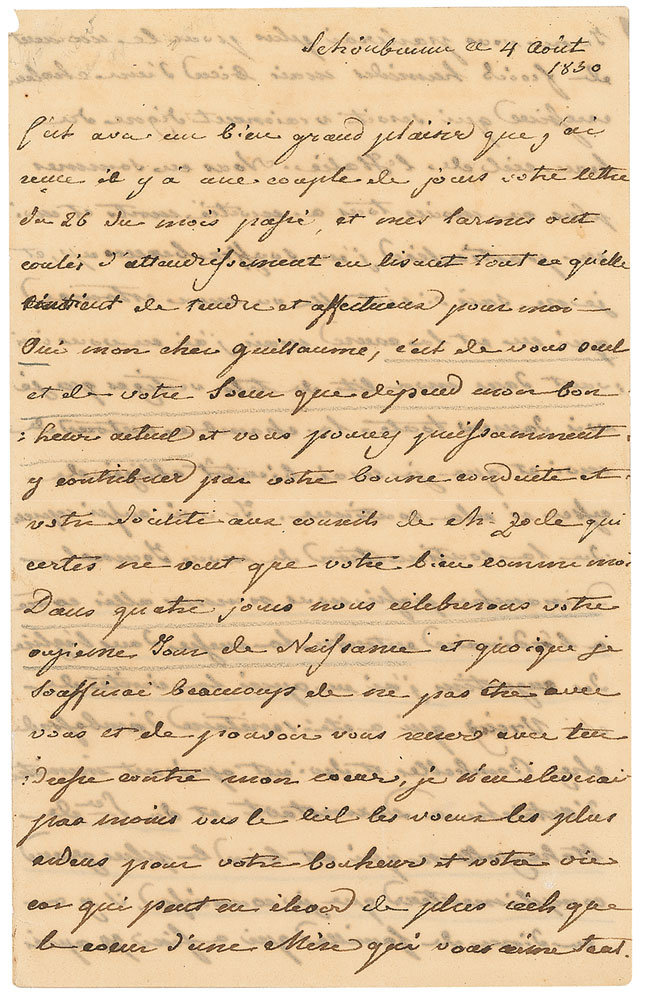 Schönbrunn ce 4 Août
1830
C'est avec un bien grand plaisir que j'ai
reçue il y à une couple de jours votre lettre
du 26 du mois passé, et mes larmes ont
coulés d'attendrissement en lisant tout ce qu'elle
contient de tendre et affectueux pour moi –
Oui mon cher Guillaume, c'est de vous seul
et de votre Soeur que dépend mon bon
:heur actuel et vous pouvez puissamment
y contribuer par votre bonne conduite et
votre docilité aux conseils de Mr. Zode qui
certes ne veut que votre bien comme moi
Dans quatre jours nous célébrerons votre
onzieme Jour de Naissance et quoique je
souffrirai beaucoup de ne pas être avec
vous et de pouvoir vous serrer avec ten
:dresse contre mon coeur, je n'en éleverai
pas moins vers le Ciel les voeux les plus
ardens pour votre bonheur et votre vie
car qui peut en élever de plus réels que
le coeur d'une Mère qui vous aime tant.